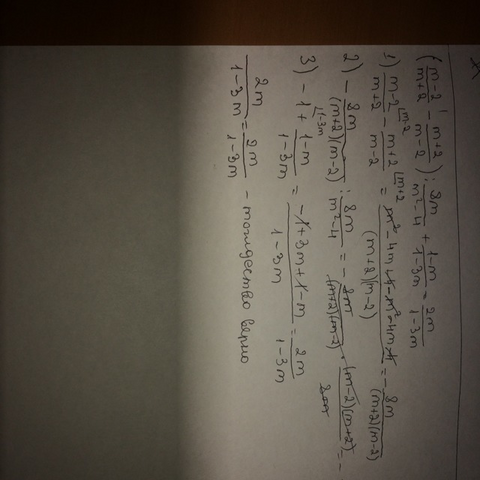 (m-2/m+2 - m+2/m-2) : 8m/m²-4 + 1-m/1-3m = 2m/1-3m
1) m-2/m+2 - m+2/m-2 = m²-4m+4-m²-4m-4/(m+2)(m-2) = - 8m/(m+2)(m-2)
2) - 8m/(m+2)(m-2) : 8m/m²-4 = - 8m/(m+2)(m-2) · (m-2)(m+2)/8m = -
3) -1 + 1-m/1-3m = -1+3m+1-m/1-3m = 2m/1-3m
2m/1-3m = 2m/1-3m - тождество верно